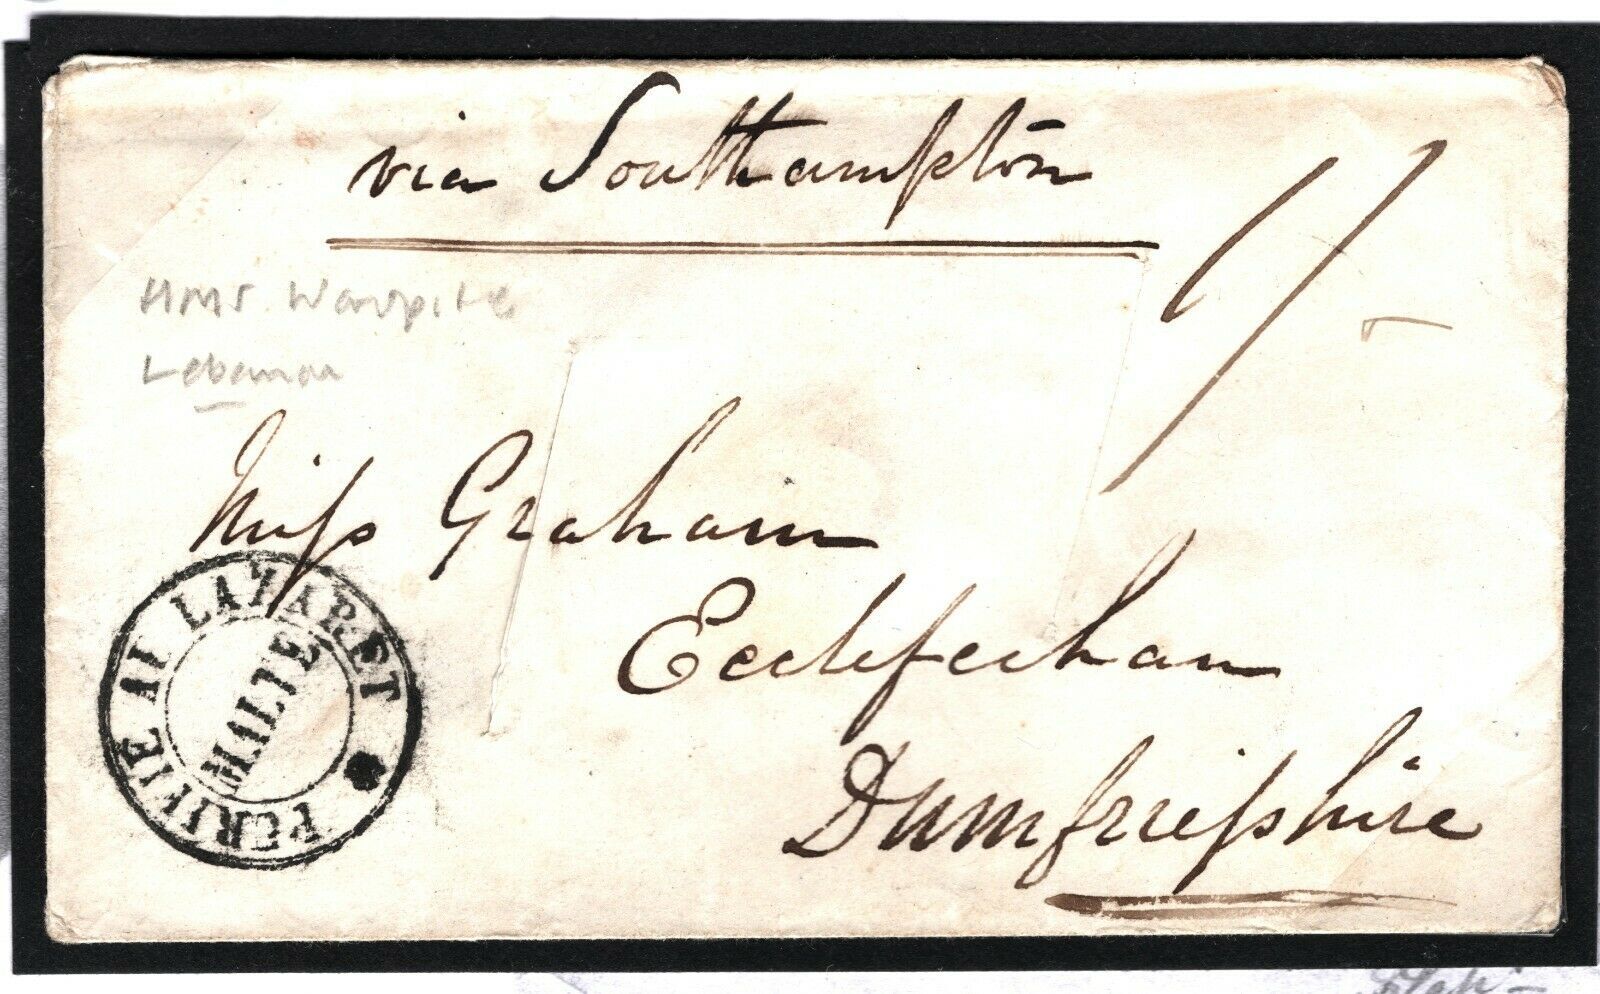 via Southampton
1/
HMS Warspite
Lebanon
Miſs Graham
Ecclefechan
Dumfrieſshire
PURIFIE AU LAZARET
MALTE